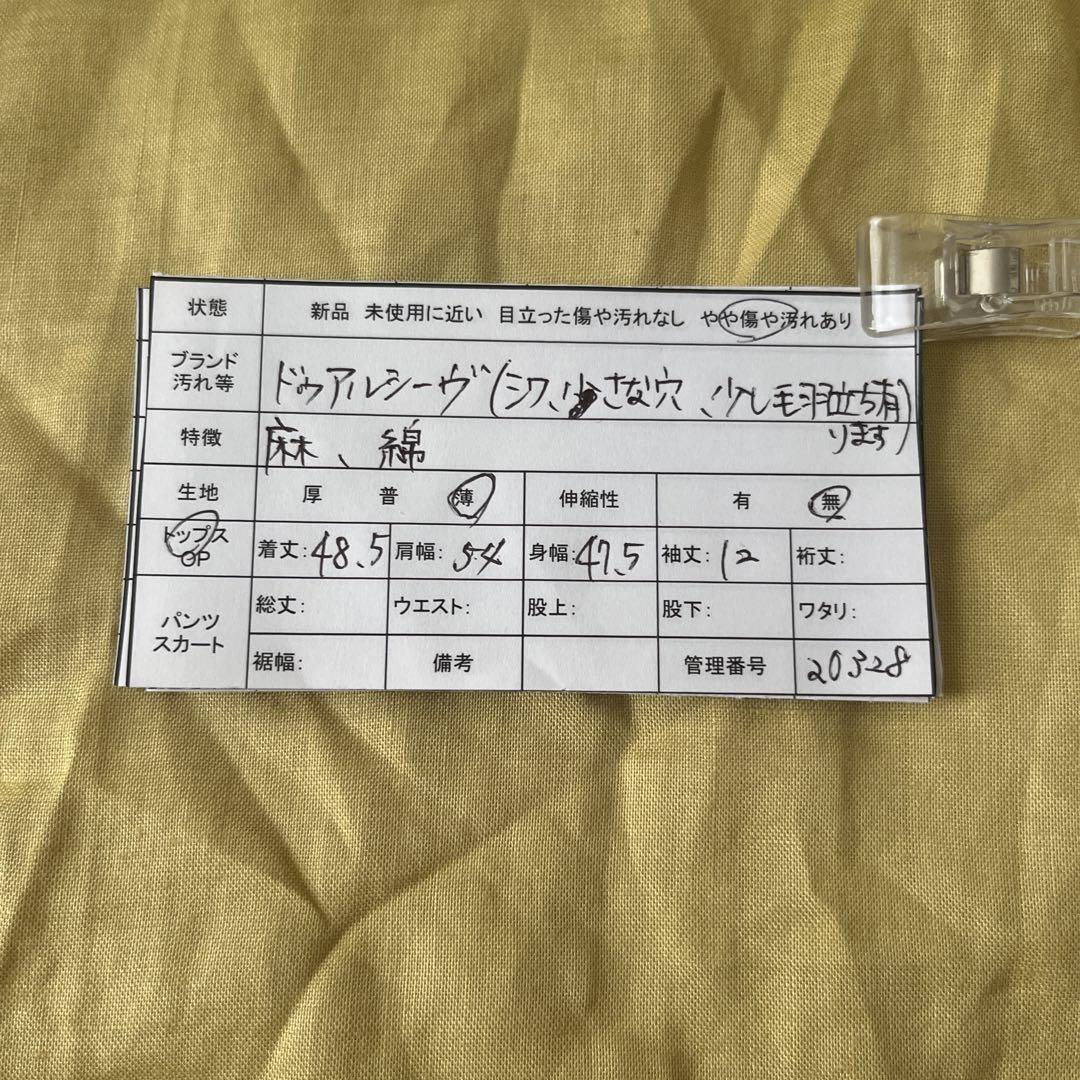 状態 新品 未使用に近い 目立った傷や汚れなし やや傷や汚れあり
ブランド
汚れ等
ドゥアルシーヴ(シワ、小さな穴、少し毛羽立ち有
ります)
特徴 麻、綿
生地 厚 普 薄 伸縮性 有 無
トップス
OP
着丈:48.5 肩幅:54 身幅:47.5 袖丈:12 裄丈:
パンツ
スカート
総丈: ウエスト: 股上: 股下: ワタリ:
裾幅: 備考 管理番号 20328